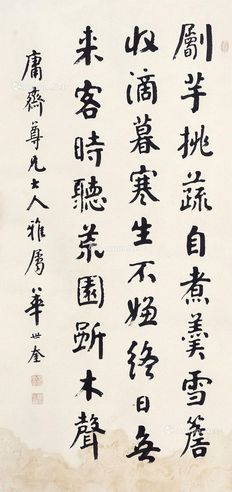 劚芋挑蔬自煮羹雪簷
收滴暮寒生不嫌終日無
来客時聽菜園斲木聲
庸齋尊兄大人雅属 華世奎